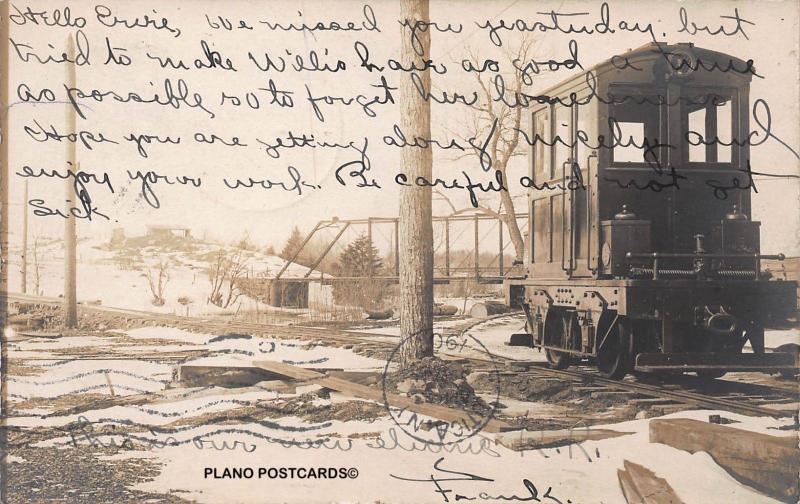 Hello Ernie, We missed you yeasturday. but
tried to make Willis have as good a time
as possible, so to forget her loneleness
Hope you are getting along nicely and
enjoy your work. Be careful and not get
Sick.
this is our new electric R.R.
PLANO POSTCARDS©
Frank.